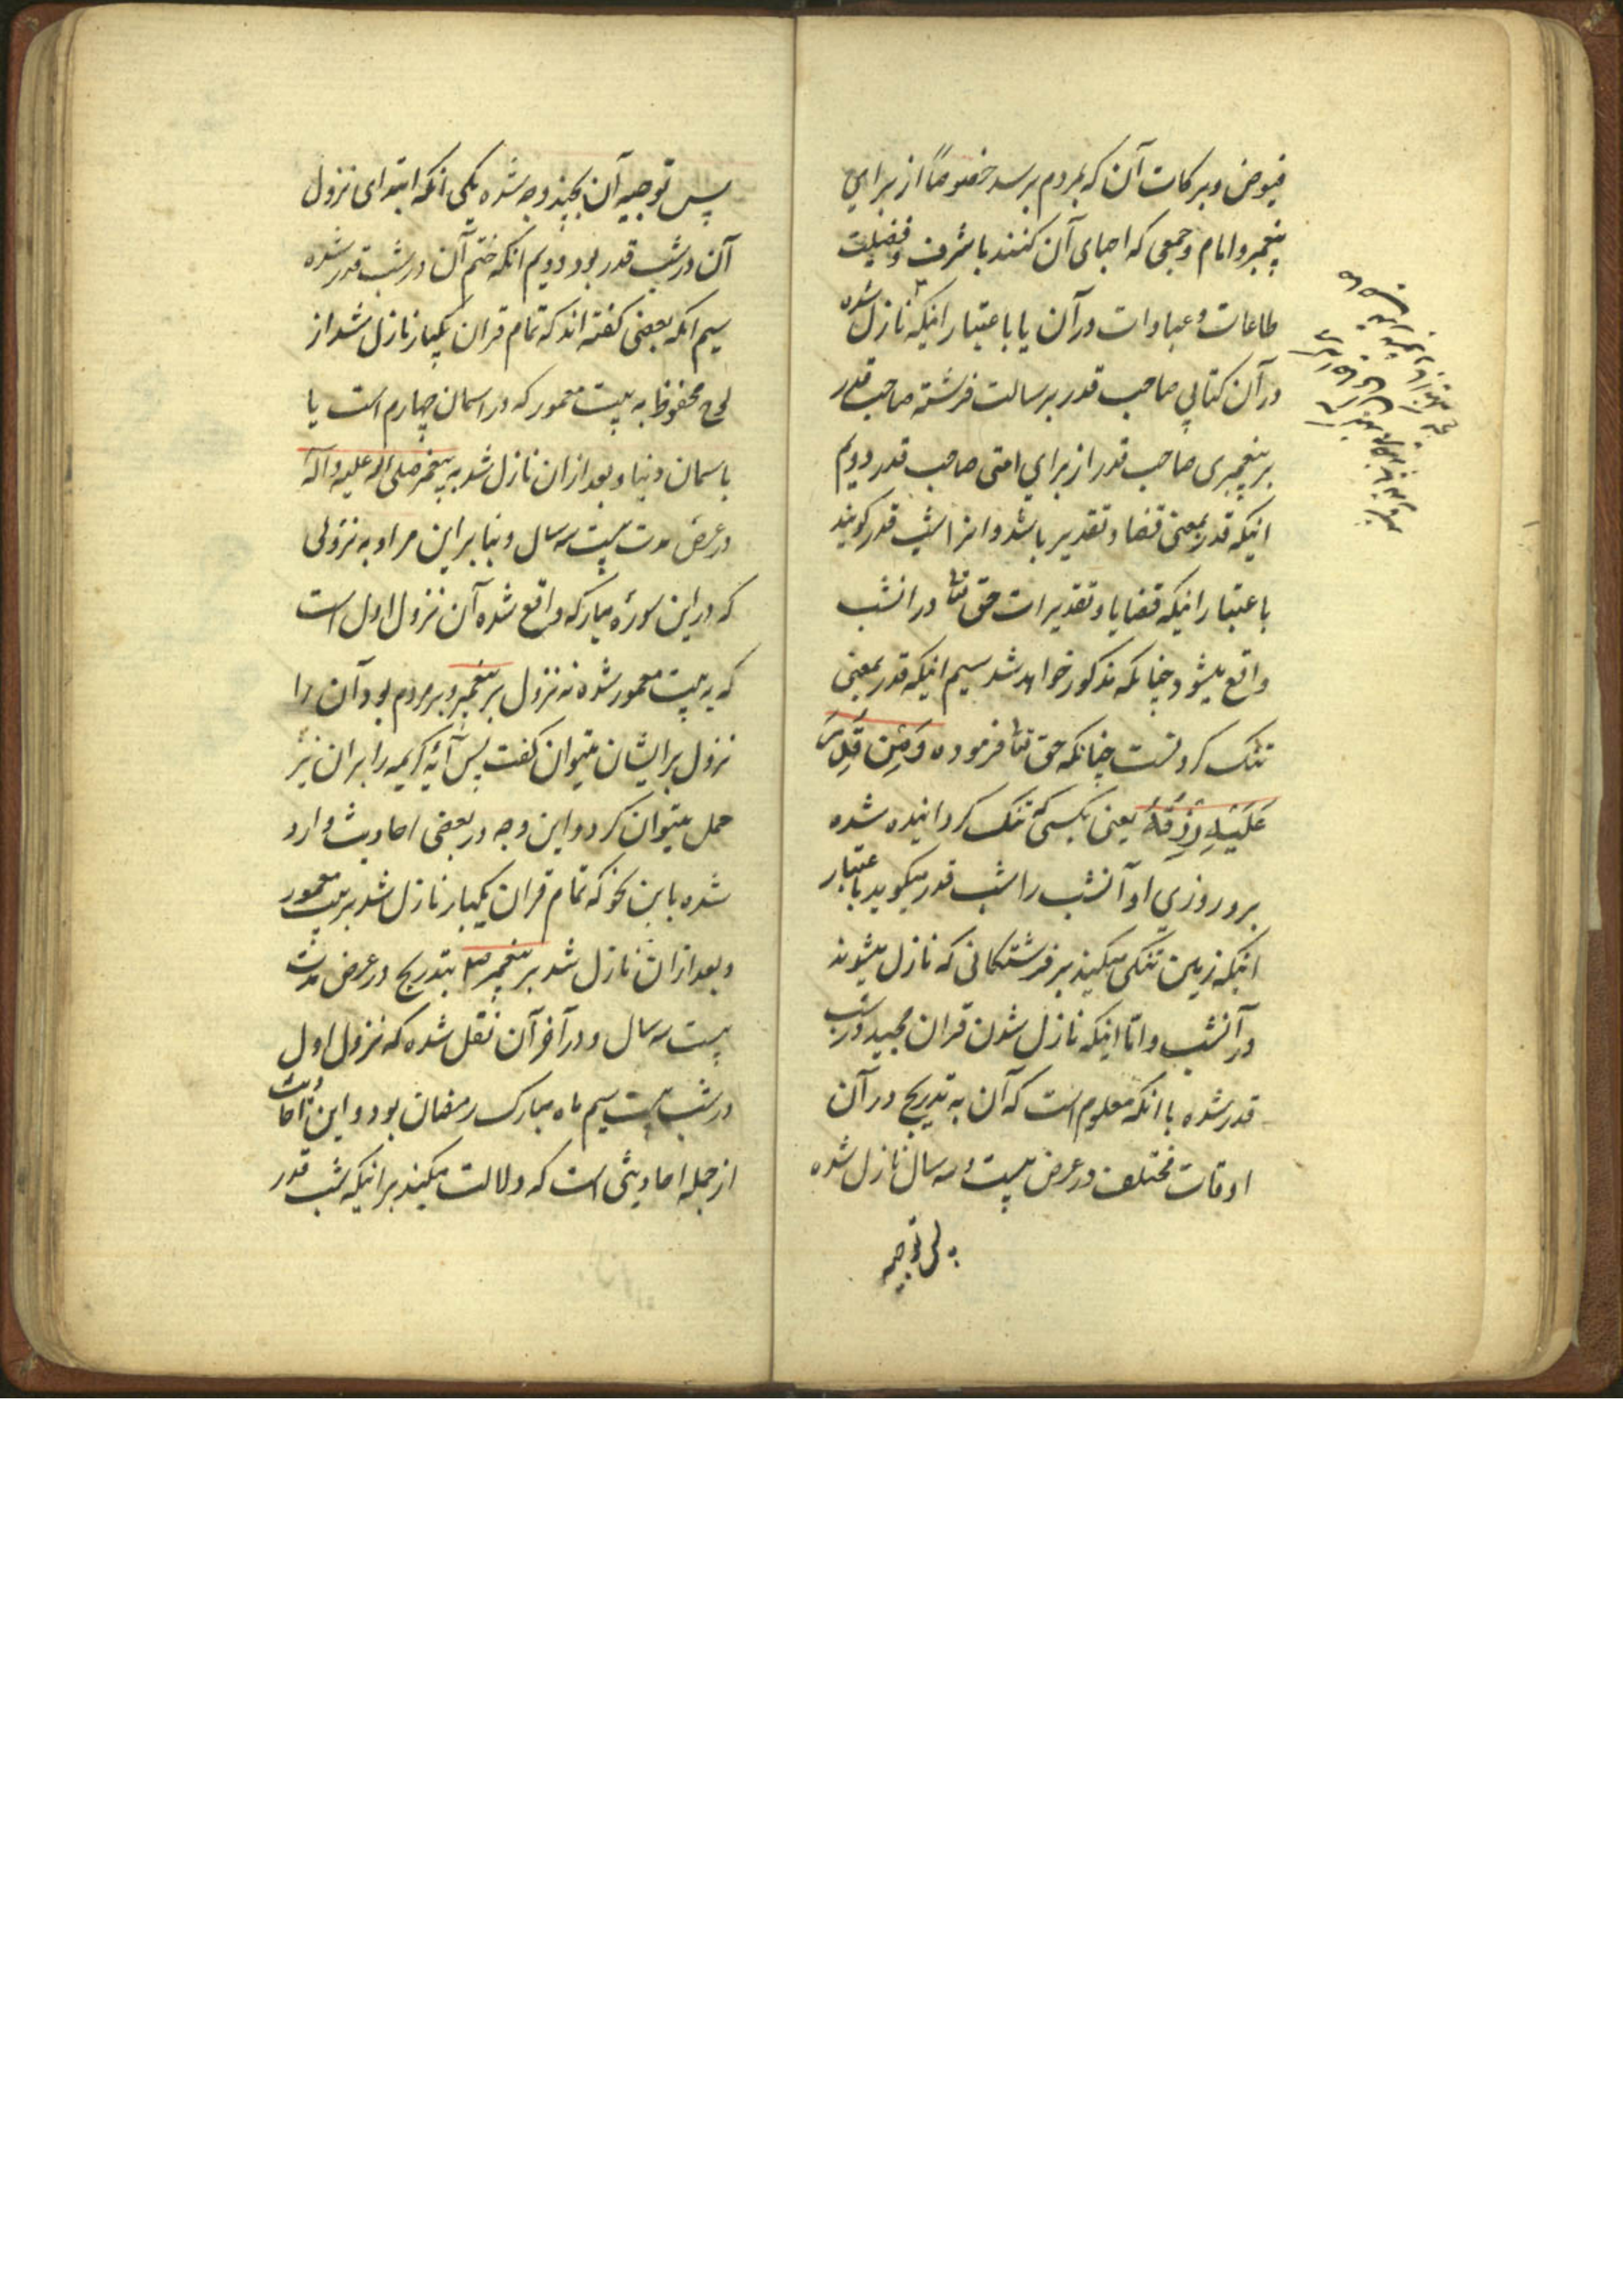 فیوض و برکات آن که بمردم برسد خصوصاً از برای
پیغمبر و امام و جمعی که احیای آن کنند با شرف و فضیلت
طاعات و عبادات در آن یا باعتبار اینکه نازل شده
در آن کتابی صاحب قدر برسالت فرشته صاحب قدر
بر پیغمبری صاحب قدر از برای امتی صاحب قدر دویم
اینکه قدر بمعنی قضا و تقدیر باشد و انرا شب قدر کویند
باعتبار اینکه قضایا و تقدیرات حق تعا در انشب
واقع میشود چنانکه مذکور خواهد شد سیم اینکه قدر بمعنی
تنک کردنست چنانکه حق تعا فرموده وَمَن قُدِرَ
عَلَیْهِ رِزْقُهُ یعنی بکسی که تنک کردانیده شده
برو روزی او آنشب را شب قدر میکویند باعتبار
اینکه زمین تنکی میکند بر فرشتکانی که نازل میشوند
در آنشب و اما اینکه نازل شدن قران مجید در شب
قدر شده با انکه معلوم است که آن به تدریج در آن
اوقات مختلف در عرض بیست و سه سال نازل شده
پس توجیه
پس توجیه آن بچند وجه شده یکی انکه ابتدای نزول
آن در شب قدر بود دویم انکه ختم آن در شب قدر شده
سیم انکه بعضی کفته اند که تمام قران یکبار نازل شد از
لوح محفوظ به بیت معمور که در اسمان چهارم است یا
باسمان دنیا و بعد ازان نازل شد به پیغمبر صلی الله علیه و آله
در عرض مدت بیست سه سال و بنا براین مراد به نزولی
که در این سورهٔ مبارکه واقع شده آن نزول اول است
که به بیت معمور شده نه نزول بر پیغمبر و بر مردم بود آن را
نزول بر ایشان میتوان کفت پس آیهٔ کریمه را بران نیز
حمل میتوان کرد و این وجه در بعضی احادیث وارد
شده باین نحو که تمام قران یکبار نازل شد بر بیت معمور
و بعد ازان نازل شد بر پیغمبر صلم بتدریج در عرض مدت
بیست سه سال و در آخر آن نقل شده که نزول اول
در شب بیست سیم ماه مبارک رمضان بود و این
از جمله احادیثی است که دلالت میکند بر اینکه شب قدر